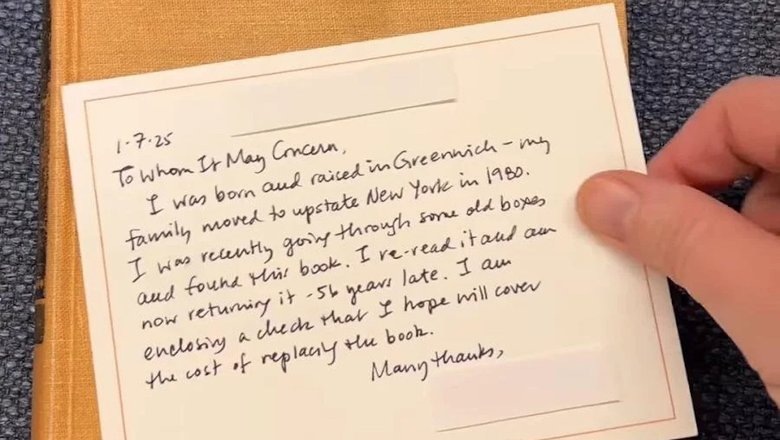 1.7.25
To Whom It May Concern,
I was born and raised in Greenwich - my
family moved to upstate New York in 1980.
I was recently going through some old boxes
and found this book. I re-read it and am
now returning it - 56 years late. I am
enclosing a check that I hope will cover
the cost of replacing the book.
Many thanks,